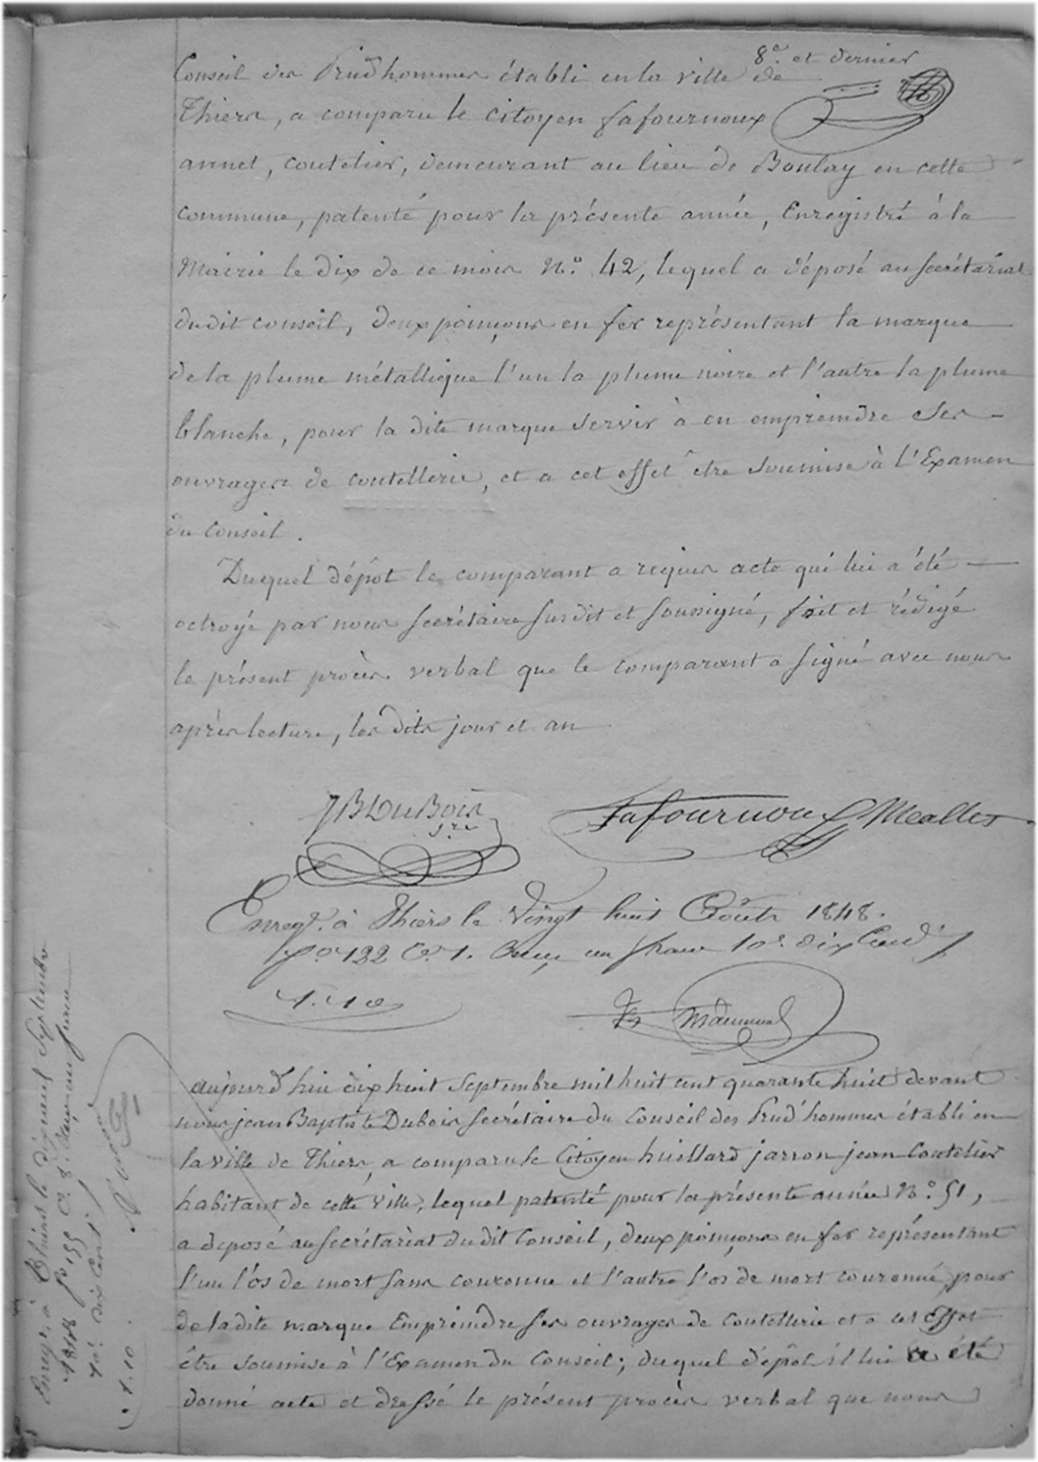 8e. et dernier
Conseil des Prud'hommes établi en la ville de
Thiers, a comparu le citoyen Lafournoux
annet, coutelier, demeurant au lieu de Boulay en cette
commune, patenté pour la présente année, Enregistré à la
Mairie le dix de ce mois N.o 42, lequel a déposé au secrétariat
du dit conseil, deux poinçons en fer représentant la marque
de la plume métallique l'un la plume noire et l'autre la plume
blanche, pour la dite marque servir à en empreindre ses
ouvrages de coutellerie, et a cet effet être soumise à l'Examen
du conseil.
Duquel dépôt le comparant a requis acte qui lui a été
octroyé par nous secrétaire susdit et soussigné, fait et rédigé
le présent procès verbal que le comparant a signé avec nous
après lecture, les dits jour et an
JB DuBois Lafournoux
s.re
Enreg.é à Thiers le Vingt huit Août 1848.
f.o 122 C.e 1. Reçu un franc 10.c dix cent.
1.10
aujourd'hui dix huit Septembre mil huit cent quarante huit devant
nous jean Baptiste Dubois Secrétaire du Conseil des Prud'hommes établi en
la ville de Thiers, a comparu le Citoyen huillard jarron jean Coutelier
habitant de cette Ville, lequel patenté pour la présente année N.o 51,
a déposé au secrétariat du dit Conseil, deux poinçons en fer représentant
l'un l'os de mort sans couronne et l'autre l'os de mort couronné, pour
de la dite marque Empreindre ses ouvrages de Coutellerie et a cet Effet
être soumise à l'Examen du Conseil; duquel dépôt il lui a été
donné acte et dressé le présent procès verbal que nous
Enreg. à Thiers le Septembre
1848 f.o 155 C.e 8. Reçu un franc
10.c dix cent.
1.10.